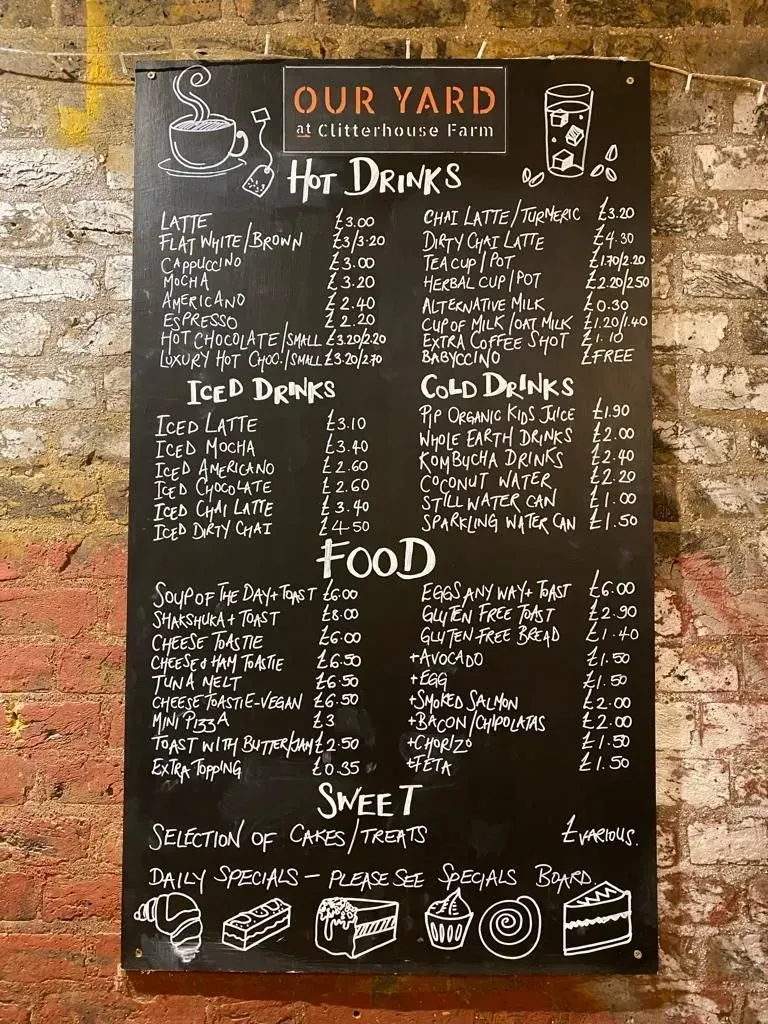 OUR YARD
at Clitterhouse Farm
HOT DRINKS
LATTE £3.00
FLAT WHITE/BROWN £3/3.20
CAPPUCCINO £3.00
MOCHA £3.20
AMERICANO £2.40
ESPRESSO £2.20
HOT CHOCOLATE/SMALL £3.20/2.20
LUXURY HOT CHOC./SMALL £3.20/2.70
CHAI LATTE/TURMERIC £3.20
DIRTY CHAI LATTE £4.30
TEA CUP/POT £1.70/2.20
HERBAL CUP/POT £2.20/2.50
ALTERNATIVE MILK £0.30
CUP OF MILK/OAT MILK £1.20/1.40
EXTRA COFFEE SHOT £1.10
BABYCCINO £FREE
ICED DRINKS
ICED LATTE £3.10
ICED MOCHA £3.40
ICED AMERICANO £2.60
ICED CHOCOLATE £2.60
ICED CHAI LATTE £3.40
ICED DIRTY CHAI £4.50
COLD DRINKS
PIP ORGANIC KIDS JUICE £1.90
WHOLE EARTH DRINKS £2.00
KOMBUCHA DRINKS £2.40
COCONUT WATER £2.20
STILL WATER CAN £1.00
SPARKLING WATER CAN £1.50
FOOD
SOUP OF THE DAY + TOAST £6.00
SHAKSHUKA + TOAST £8.00
CHEESE TOASTIE £6.00
CHEESE & HAM TOASTIE £6.50
TUNA MELT £6.50
CHEESE TOASTIE-VEGAN £6.50
MINI PIZZA £3
TOAST WITH BUTTER/JAM £2.50
EXTRA TOPPING £0.35
EGGS ANY WAY + TOAST £6.00
GLUTEN FREE TOAST £2.90
GLUTEN-FREE BREAD £1.40
+AVOCADO £1.50
+EGG £1.50
+SMOKED SALMON £2.00
+BACON/CHIPOLATAS £2.00
+CHORIZO £1.50
+FETA £1.50
SWEET
SELECTION OF CAKES/TREATS £VARIOUS.
DAILY SPECIALS – PLEASE SEE SPECIALS BOARD